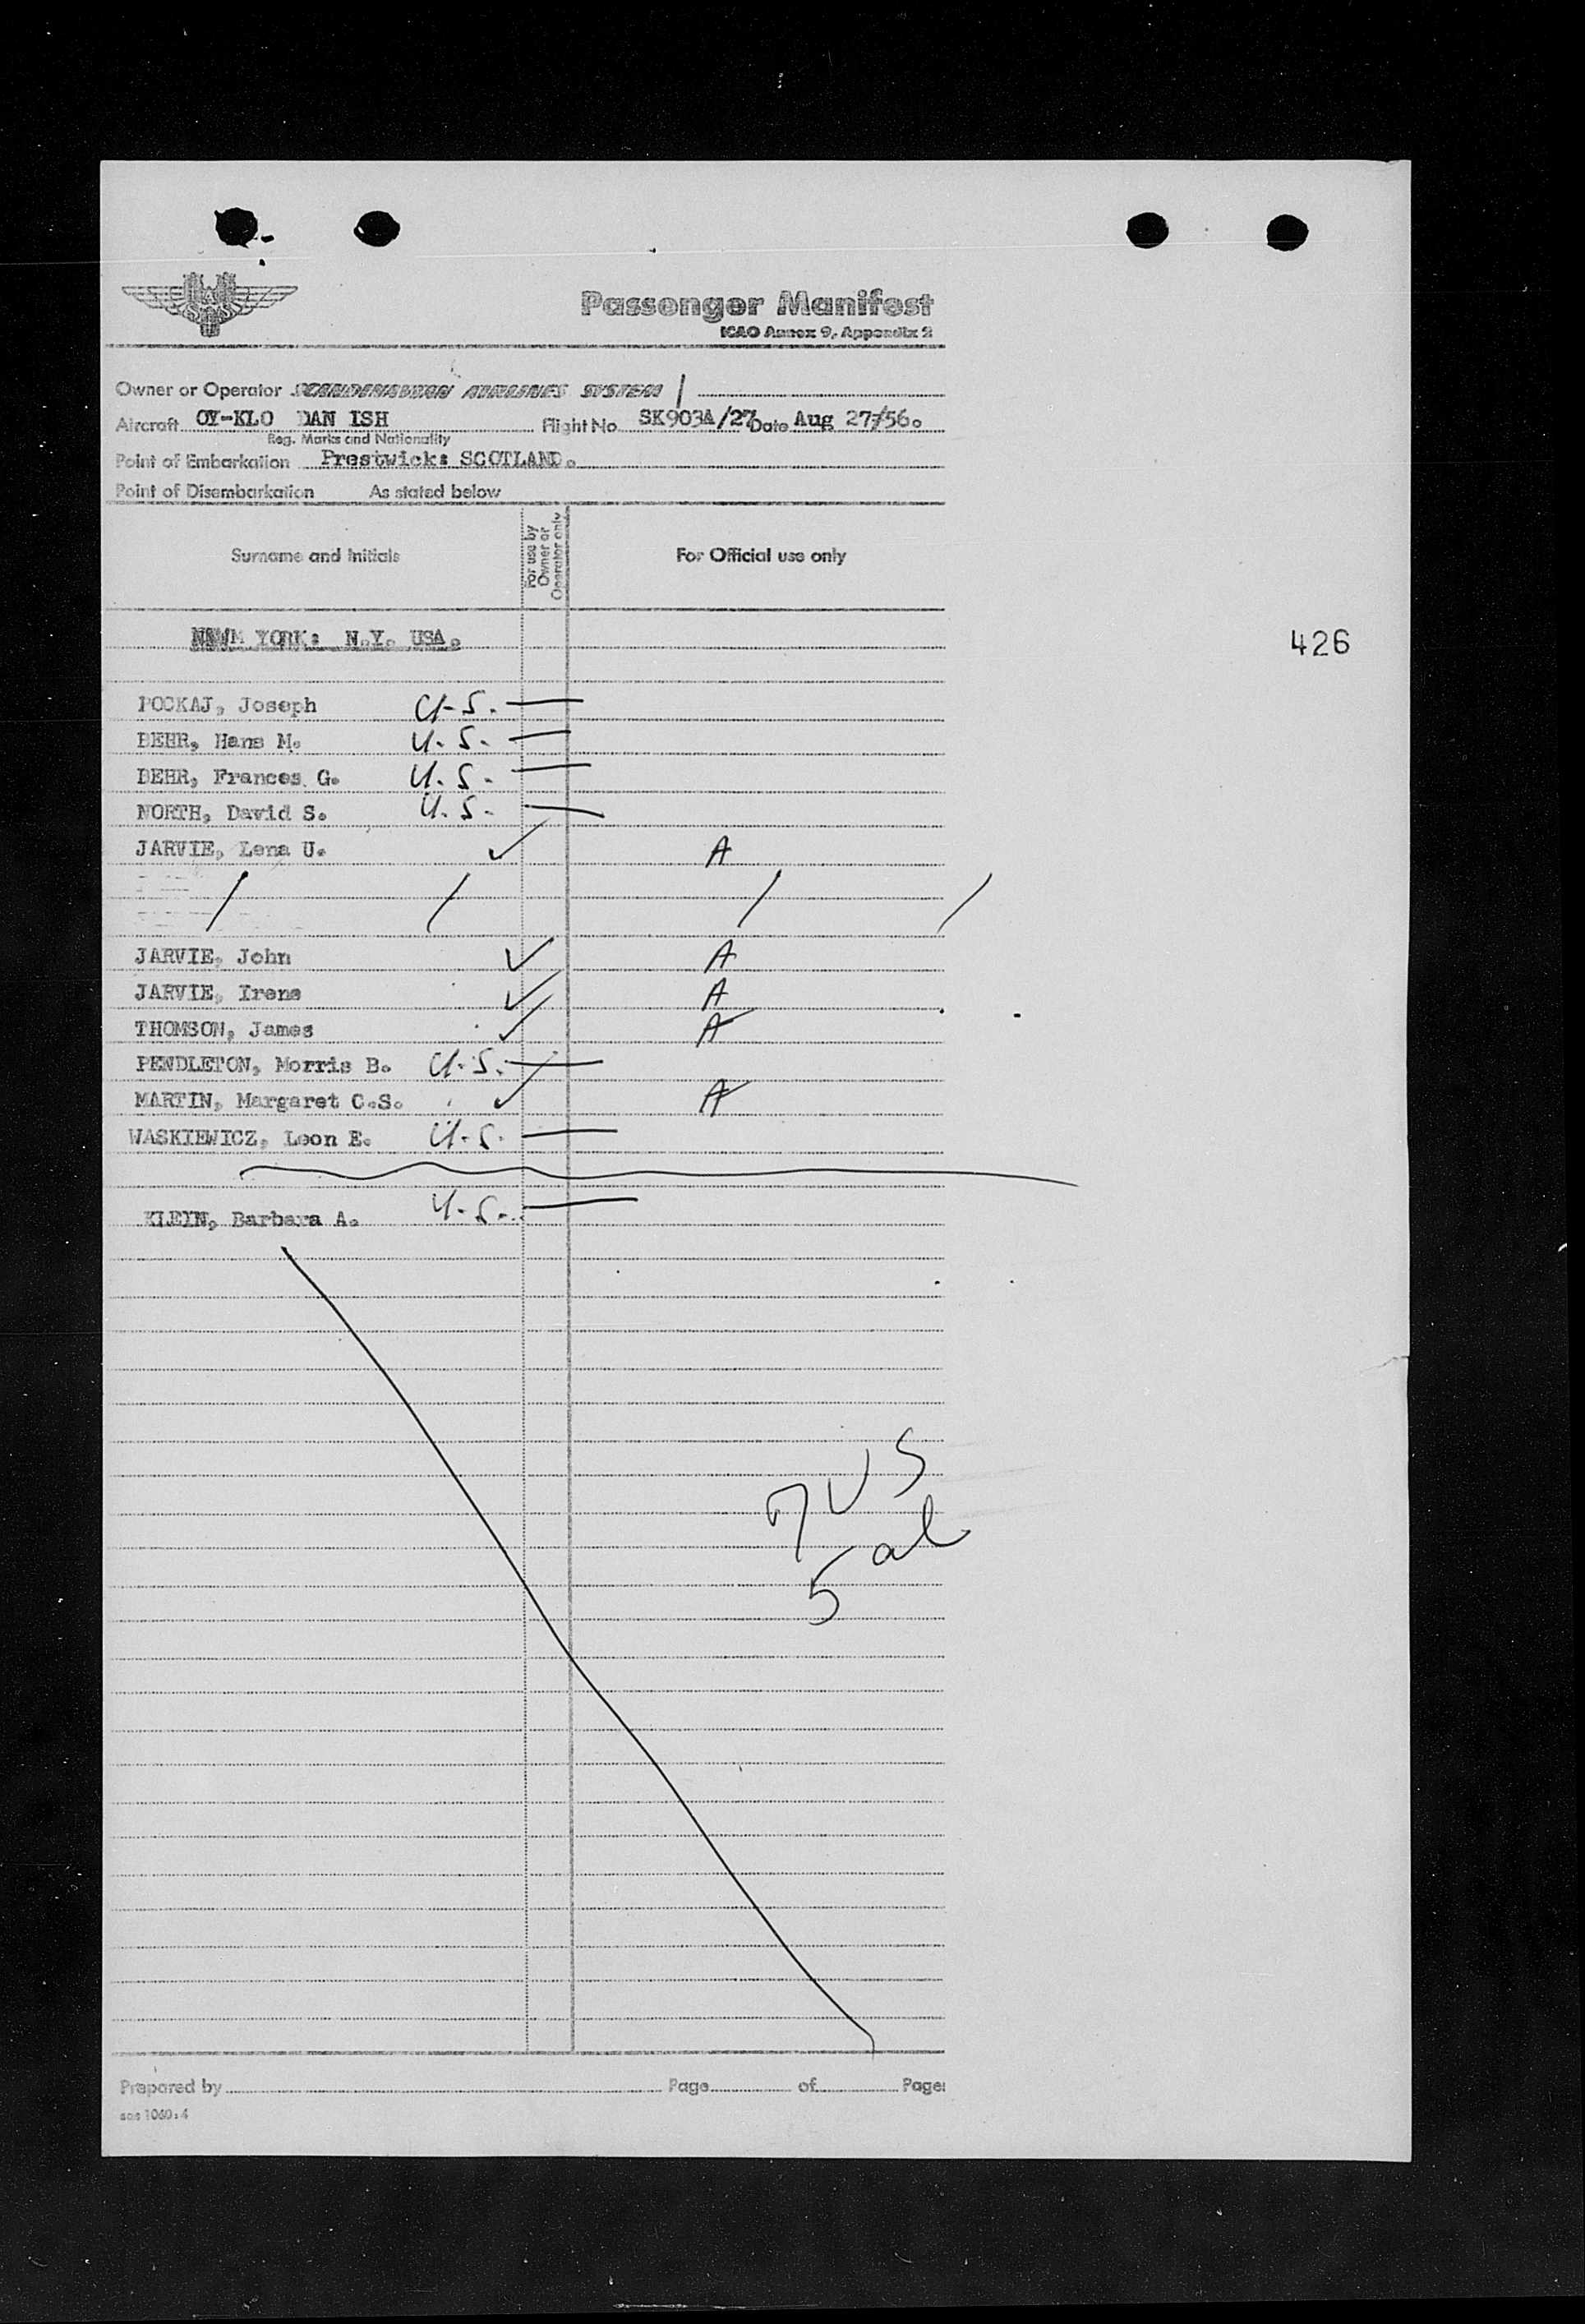 SAS
Passenger Manifest
ICAO Annex 9, Appendix 2
Owner or Operator SCANDINAVIAN AIRLINES SYSTEM /
Aircraft OY-KLO DAN ISH Flight No SK903A/27 Date Aug 27/56.
Reg. Marks and Nationality
Point of Embarkation Prestwick: SCOTLAND.
Point of Disembarkation As stated below
Surname and Initials For use by Owner or Operator only For Official use only
YORK: N.Y. USA.
426
POCKAJ, Joseph U.S. —
BEHR, Hans M. U.S. —
BEHR, Frances G. U.S. —
NORTH, David S. U.S. —
JARVIE, Lena U. ✓ A
/ / / /
JARVIE, John ✓ A
JARVIE, Irene ✓ A
THOMSON, James ✓ A
PENDLETON, Morris B. U.S. —
MARTIN, Margaret C.S. ✓ A
WASKIEWICZ, Leon E. U.S. —
KLEIN, Barbara A. U.S. —
7 US
5 al
Prepared by Page of Page
sas 1060:4